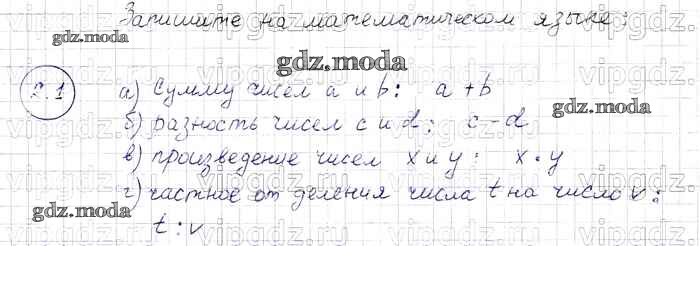 Запишите на математическом языке:
gdz.moda
gdz.moda
2.1
а) Сумму чисел a и b: a + b
gdz.moda
б) разность чисел c и d: c - d
в) произведение чисел x и y: x • y
г) частное от деления числа t на число v:
gdz.moda
t : v